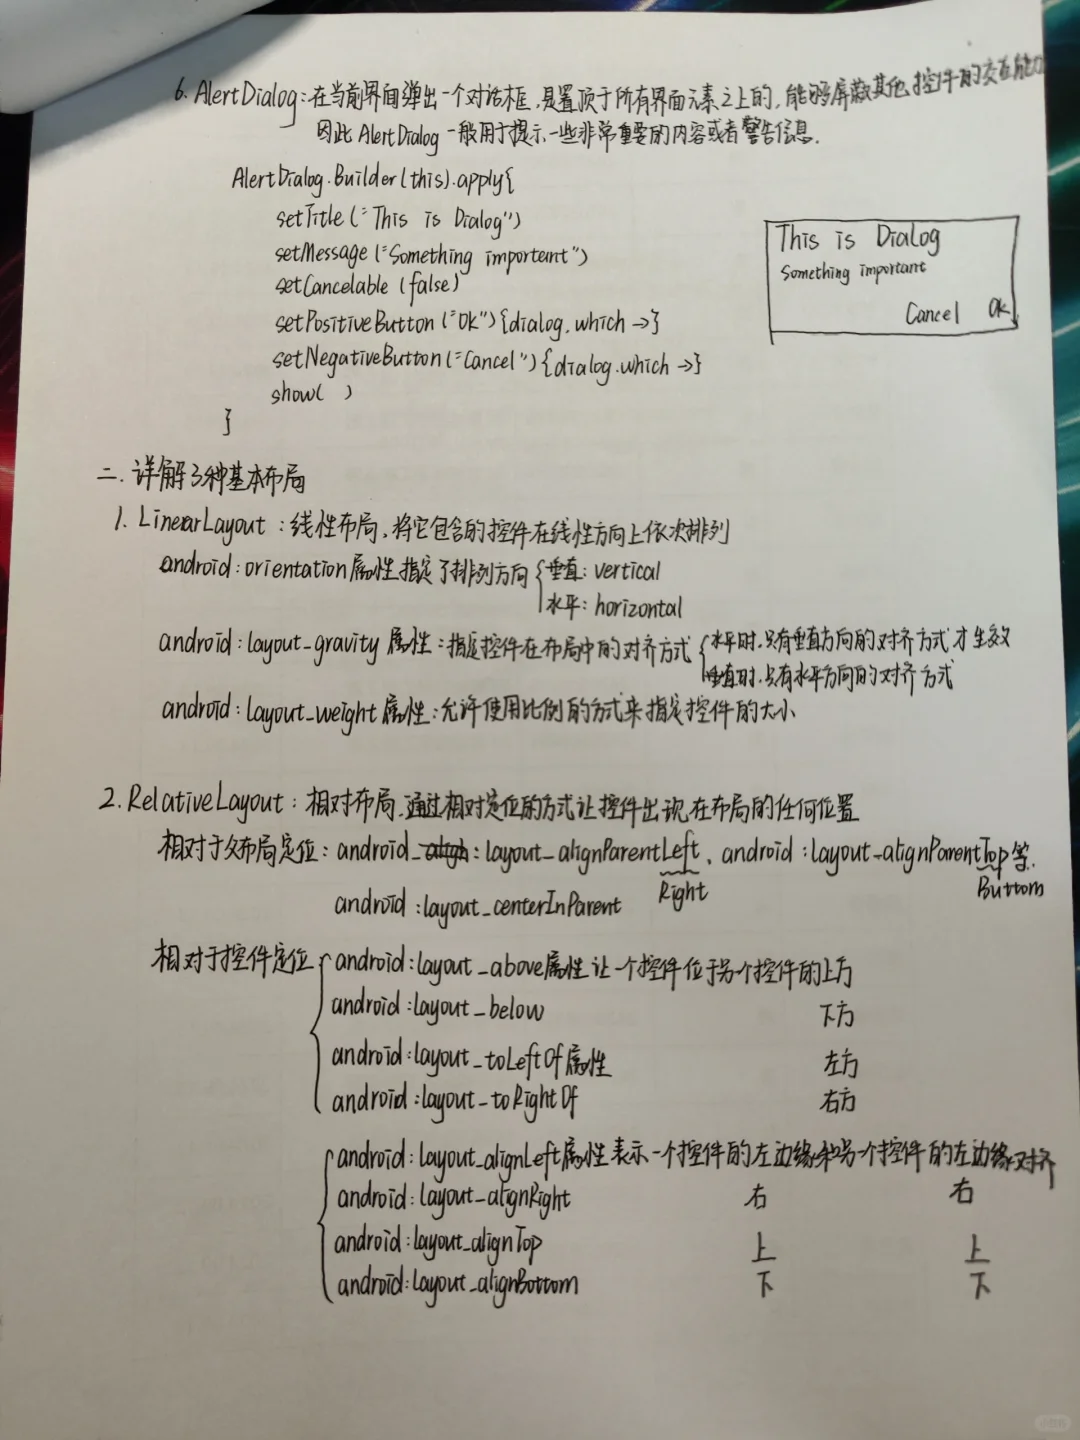 6. AlertDialog：在当前界面弹出一个对话框，是置顶于所有界面元素之上的，能够屏蔽其他控件的交互能
因此AlertDialog一般用于提示一些非常重要的内容或者警告信息.
AlertDialog.Builder(this).apply{
setTitle("This is Dialog")
setMessage("Something important")
setCancelable(false)
setPositiveButton("Ok"){dialog.which→}
setNegativeButton("Cancel"){dialog.which→}
show( )
}
This is Dialog
Something important
Cancel Ok
二. 详解3种基本布局
1. LinearLayout：线性布局，将它包含的控件在线性方向上依次排列
android:orientation属性指定了排列方向 垂直：vertical
水平：horizontal
android:layout_gravity属性：指定控件在布局中的对齐方式 水平时，只有垂直方向的对齐方式才生效
垂直时，只有水平方向的对齐方式
android:layout_weight属性：允许使用比例的方式来指定控件的大小
2. RelativeLayout：相对布局，通过相对定位的方式让控件出现在布局的任何位置
相对于父布局定位：android_align:layout_alignParentLeft、android:layout_alignParentTop等.
Right Buttom
android:layout_centerInParent
相对于控件定位 android:layout_above属性让一个控件位于另一个控件的上方
android:layout_below 下方
android:layout_toLeftOf属性 左方
android:layout_toRightOf 右方
android:layout_alignLeft属性表示一个控件的左边缘和另一个控件的左边缘对齐
android:layout_alignRight 右 右
android:layout_alignTop 上 上
android:layout_alignBottom 下 下